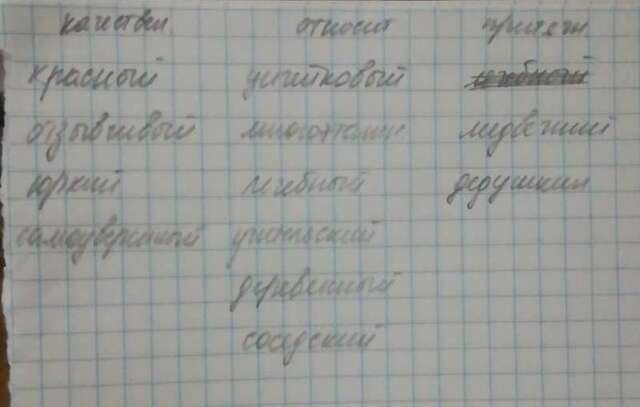 качествен относит притяж
красный улитковый лечебный
отзывчивый многоэтажн медвежий
юркий лечебный дедушкин
самоуверенный учительский
деревенный
соседский